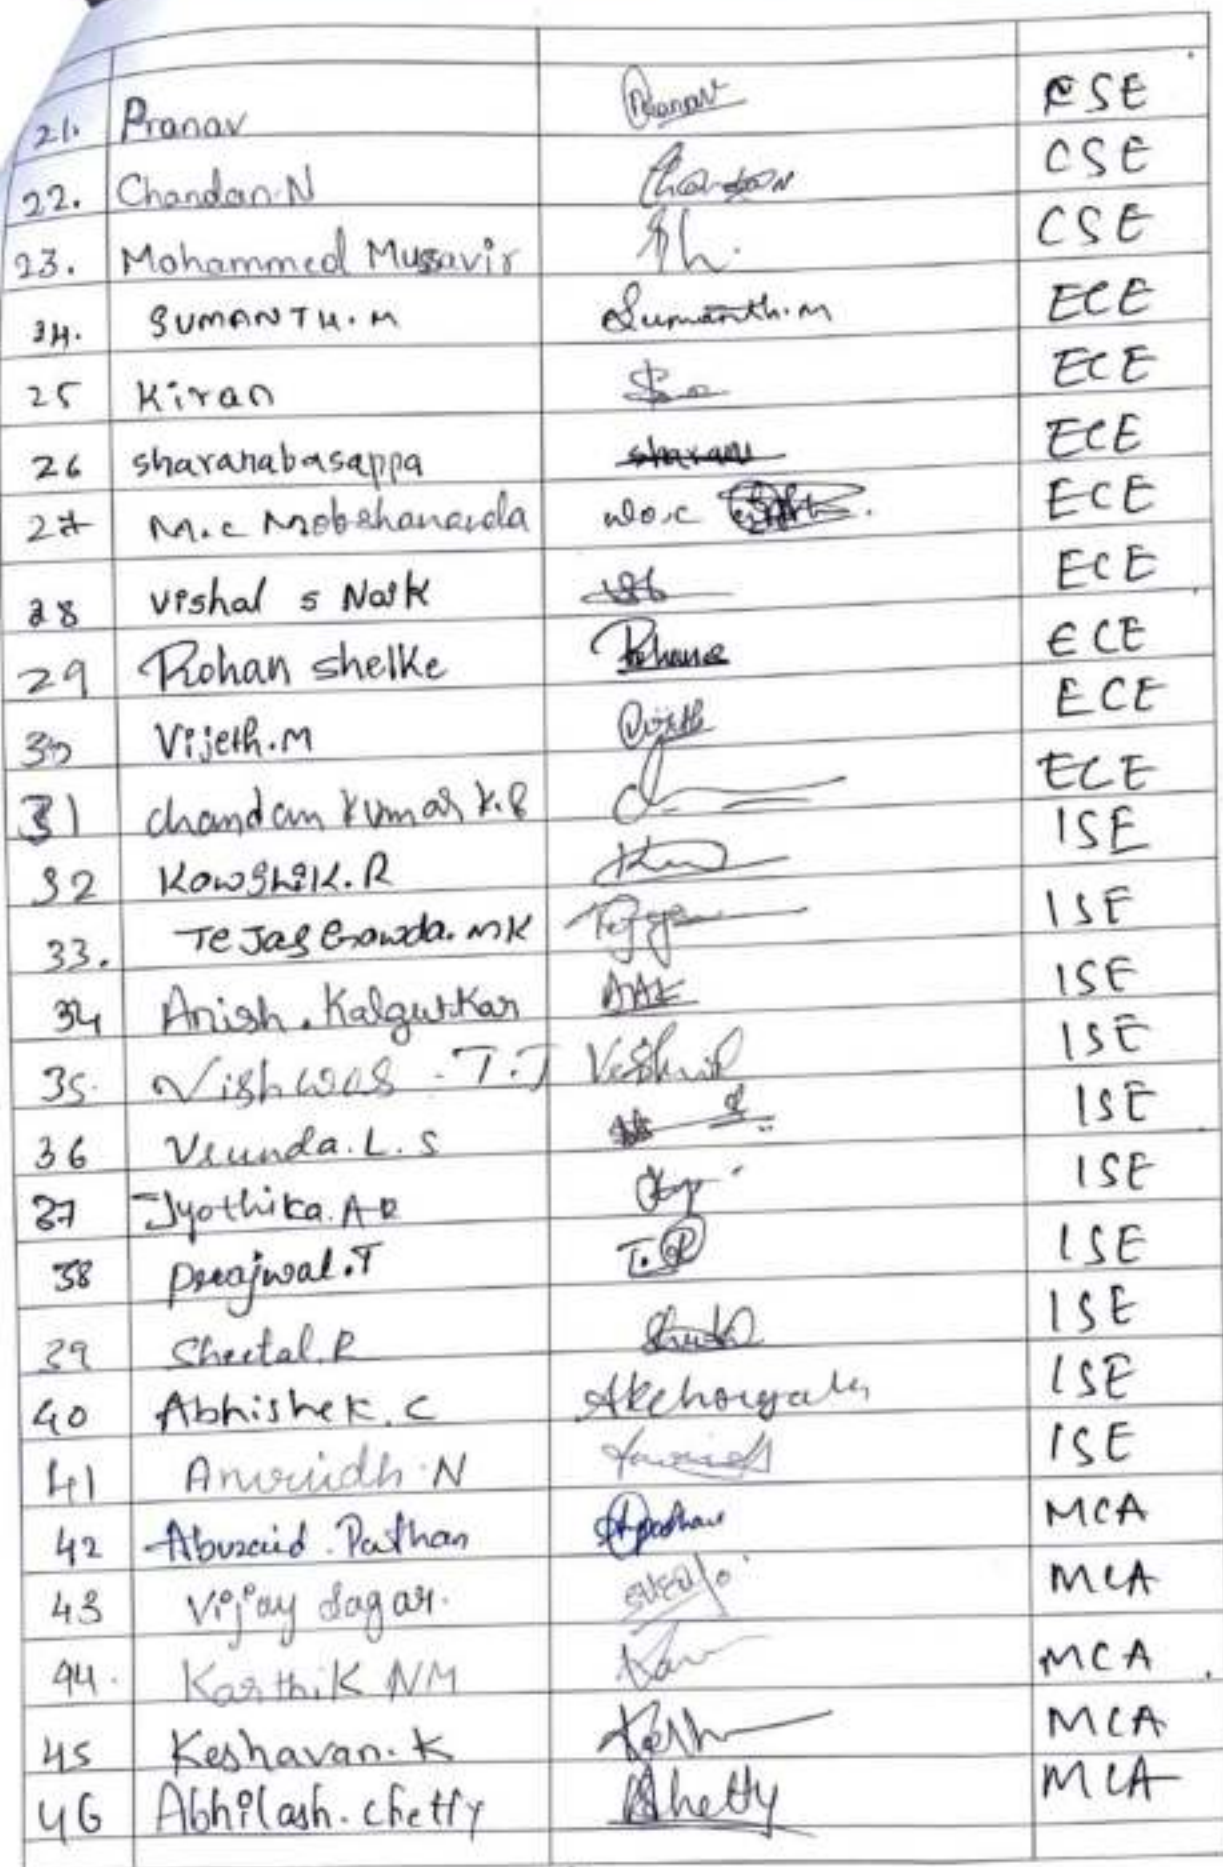 21. Pranav Pranav CSE
22. Chandan.N Chandan CSE
23. Mohammed Mussavir CSE
24. SUMANTH.M Sumanth.m ECE
25 Kiran ECE
26 sharanabasappa sharan ECE
27 M.C ECE
28 Vishal S Naik ECE
29 Rohan Shelke ECE
30 Vijeth.M Vijeth ECE
31 Chandan Kumar K.B ECE
32 Kowshik.R ISE
33. Tejas Gowda.MK ISE
34 Anish.Kalgutkar ISE
35. Vishwas.T.J ISE
36 Vrunda.L.S ISE
37 Jyothika.A R ISE
38 Prajwal.T T.P ISE
39 Sheetal.R ISE
40 Abhishek.C ISE
41 Anirudh.N ISE
42 Abuzaid.Pathan Apathan MCA
43 Vijay Sagar. MCA
44. Karthik NM MCA
45 Keshavan.K MCA
46 Abhilash.Chetty MCA